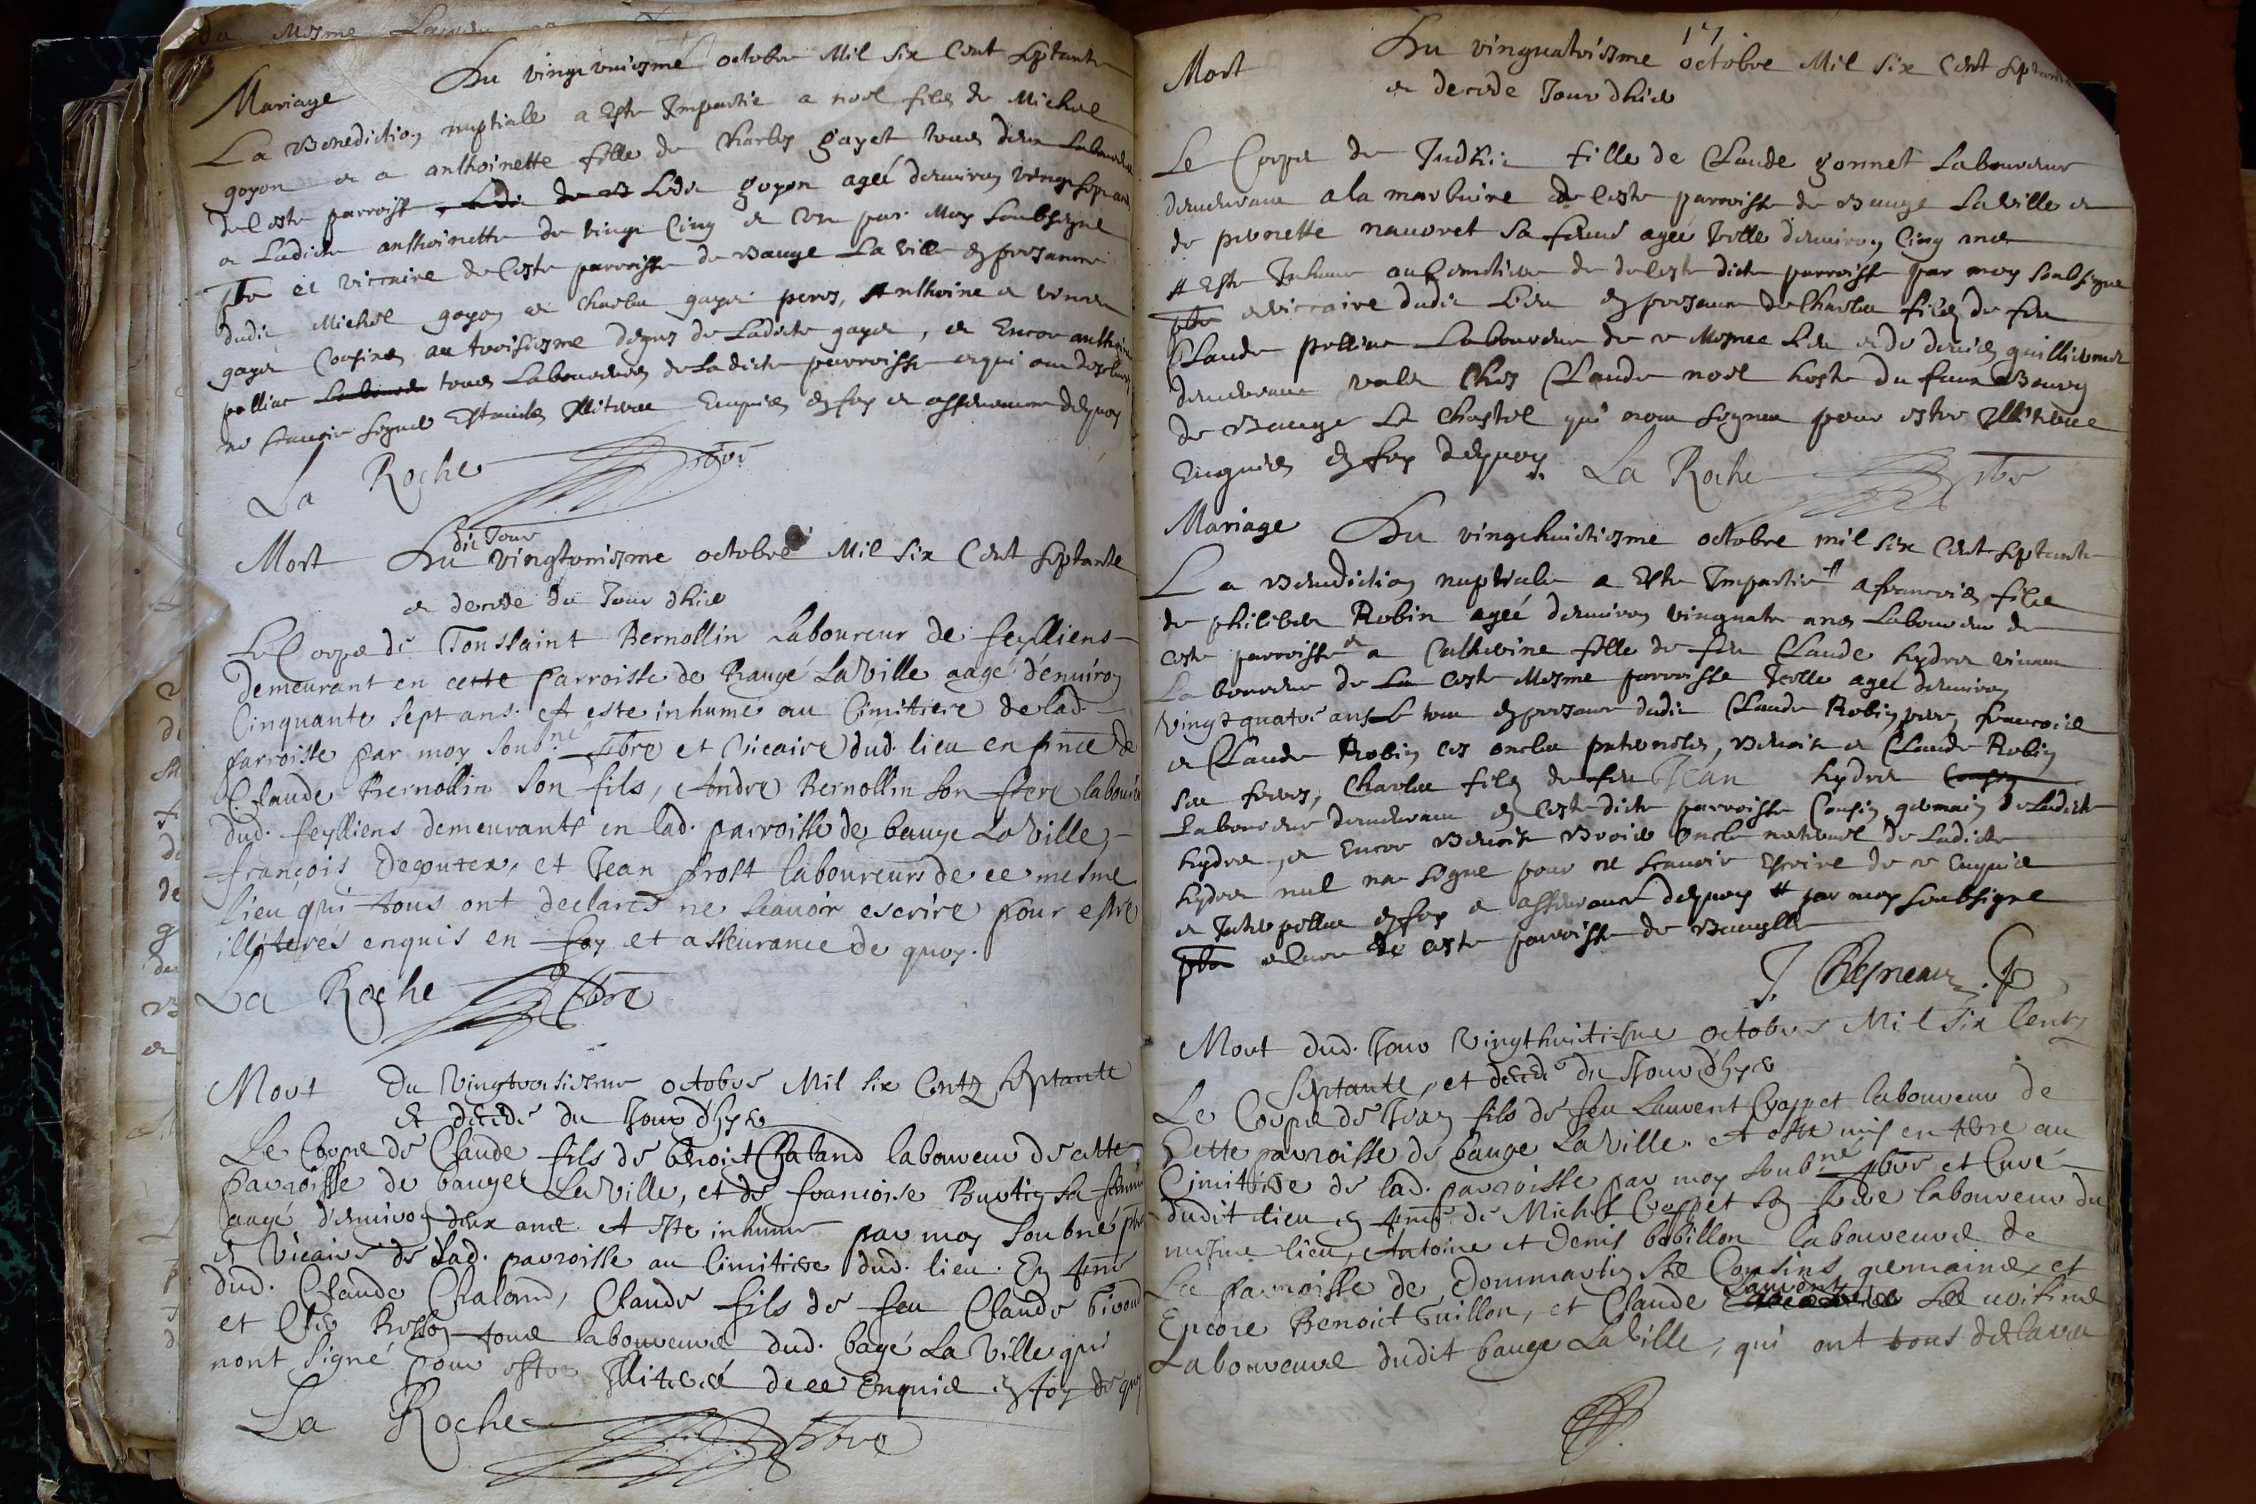 Mariage Du vingtuniesme octobre Mil six Cent septante
La Benediction nuptiale a Este Impartie a noel fils de Michel
goyon et a anthoinette fille de Charles gayet tous deux Laboureurs
de Ceste parroisse Ledit goyon ageé denviron vingt sept ans
a Ladicte anthoinette de vingt Cinq et Ce par Moy soubsigne
pbre et viccaire de Ceste parroisse de Bauge La ville en presance
dudit Michel goyon et Charles gayet peres, Anthoine et
gayet Cousins au troisiesme degres de Ladicte gayet, et Encor anthoine
pelliue tous Laboureurs de Ladicte parroisse et qui ont
ne scavoir signer Enquis en foy et asseurance dequoy
La Roche pbre
Mort Du dit Jour vingtuniesme octobre Mil six Cent septante
et decede du Jour dhier
Le Corps de Toussaint Bernollin Laboureur de feylliens
demeurant en cette Parroisse de Baugé La Ville aagé d'enuiron
Cinquante sept ans. A este inhumé au Cimittiere de lad.
parroisse par moy soubné. pbre et Vicaire dud. lieu en pnce de
Claude Bernollin son fils, Andre Bernollin son frere laboureur
dud. feylliens demeurants en lad. parroisse de bauge La Ville,
françois Decoutex, et Jean frost laboureurs de ce mesme
lieu qui tous ont declarés ne scauoir escrire pour estre
illiterés enquis en foy et asseurance de quoy.
La Roche pbre
Mort Du Vingttroisiesme octobre Mil six Centz septante
et decede du Jour d'hyer
Le Corps de Claude fils de benoict Chaland laboureur de cette
parroisse de bauge La Ville, et de françoise Burtin sa femme
aagé d'enuiron deux ans. A este inhumé par moy soubné pbre
et Vicaire de lad. parroisse au Cimitiere dud. lieu. En pnce
dud. Claude Chaland, Claude fils de feu Claude
et Cle Rosson tous laboureurs dud. bagé La Ville qui
nont signé pour estre Illiteré de ce Enquis en foy de quoy
La Roche pbre
17
Mort Du vingtquatriesme octobre Mil six Cent septante
et decede Jour dhier
Le Corps de Judhic fille de Claude gonnet Laboureur
demeurant a la marbuire de Ceste parroisse de Bauge La ville et
de pernette nauoret sa femme ageé Icelle denviron Cinq mois
A Este Inhumé au Cimetiere de Ceste dicte parroisse par moy soubsigne
pbre et viccaire dudit Lieu en presance de Charles fils de feu
Claude pelliue Laboureur de ce Mesme Lieu et de denis guilliermet
demeurant valet Chez Claude noel hoste du faux Bourg
de Bauge Le Chastel qui nont signer pour estre Illiterez
Enquis en foy dequoy La Roche pbre
Mariage Du vingthuictiesme octobre mil six Cent septante
La Benediction nuptiale a Este Impartie # a francois fils
de philibert Robin ageé denviron vingtquatre ans Laboureur de
ceste parroisse et a Catherine fille de feu Claude hydrex vivant
Laboureur de La Ceste Mesme parroisse Icelle ageé denviron
vingt quatre ans Le tout en presance dudit Claude Robin pere, francois
et Claude Robin ces oncles paternels, Benoit et Claude Robin
ses freres, Charles fils de feu Jean hydrex
Laboureur demeurant en Ceste dicte parroisse Cousin germain de Ladicte
hydrex, et Encor Benoit Broier Oncle maternel de Ladicte
hydrex nul na signe pour ne scavoir Escrire de ce Enquis
et Interpellés en foy et asseurance dequoy # par moy soubsigne
pbre et Cure de ceste parroisse de Bauge Lle
J. Chesneaux
Mort dud. Jour Vingthuictiesme octobre Mil six Centz
septante, et decede du Jour d'hyer
Le Corps de Jean fils de feu Laurent Crosset laboureur de
Cette parroisse de bauge La Ville. A este mis en terre au
Cimitiere de lad. parroisse par moy soubné pbre et Curé
dudit lieu en pnce de Michel Crosset son frere laboureur du
mesme lieu, Antoine et Denis bobillon laboureurs de
La parroisse de Dommartin Ses Cousins germains, et
Encore Benoict Guillon, et Claude Laurent Ses voisins
Laboureurs dudit bauge La Ville, qui ont tous declarés